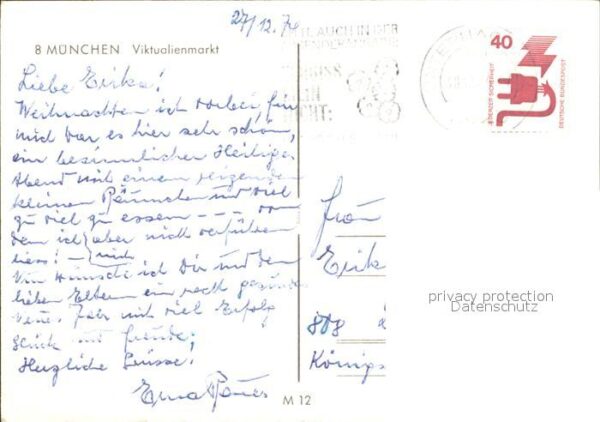 27/12.74
8 MÜNCHEN Viktualienmarkt
AUCH IN DER
40
JEDERZEIT SICHERHEIT
DEUTSCHE BUNDESPOST
Liebe Erika!
Weihnachten ist vorbei, für
mich war es hier sehr schön,
ein besinnlicher Heiliger
Abend mit einem reizenden
kleinen Bäumchen und viel
zu viel zu essen — — — von
dem ich aber nicht verführen
liess! — mich
Nun wünsche ich Dir und den
lieben Eltern ein recht gesundes
neues Jahr mit viel Erfolg
Glück und Freude;
Herzliche Grüsse!
Erna
Frau
Erik
808
Königs
privacy protection
Datenschutz
M 12